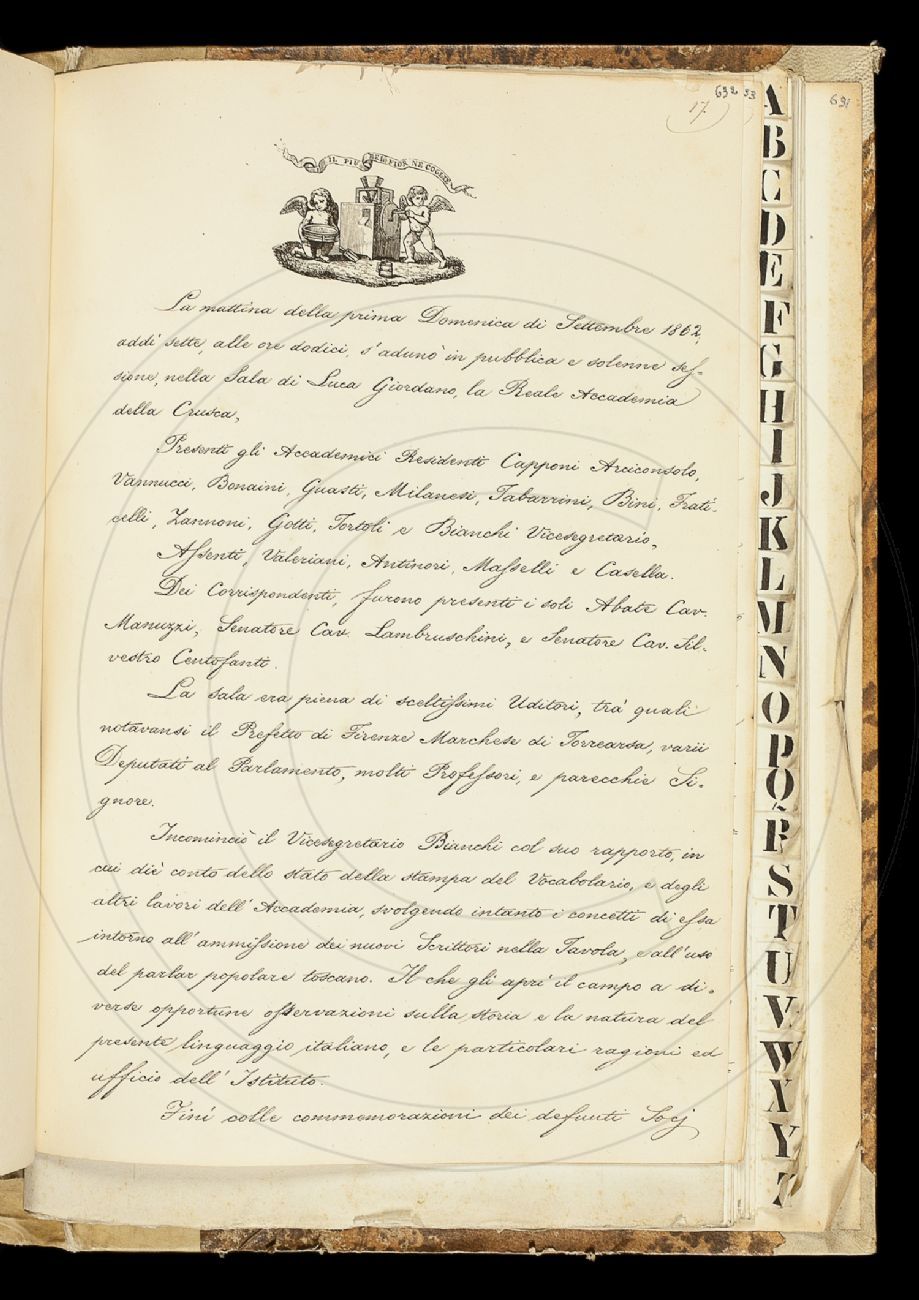 692 93
17
691
IL PIÙ BEL FIOR NE COGLIE
La mattina della prima Domenica di Settembre 1862,
addì sette, alle ore dodici, s'adunò in pubblica e solenne ses-
sione, nella Sala di Luca Giordano, la Reale Accademia
della Crusca.
Presenti gli Accademici Residenti Capponi Arciconsolo,
Vannucci, Bonaini, Guasti, Milanesi, Tabarrini, Bini, Frati-
celli, Zannoni, Gotti, Tortoli e Bianchi Vicesegretario.
Assenti, Valeriani, Antinori, Masselli e Casella.
Dei Corrispondenti, furono presenti i soli Abate Cav.
Manuzzi, Senatore Cav. Lambruschini, e Senatore Cav. Sil-
vestro Centofanti.
La sala era piena di sceltissimi Uditori, tra' quali
notavansi il Prefetto di Firenze Marchese di Torrearsa, varii
Deputati al Parlamento, molti Professori, e parecchie Si-
gnore.
Incominciò il Vicesegretario Bianchi col suo rapporto, in
cui diè conto dello stato della stampa del Vocabolario, e degli
altri lavori dell'Accademia, svolgendo intanto i concetti di essa
intorno all'ammissione dei nuovi Scrittori nella Tavola, e all'uso
del parlar popolare toscano. Il che gli aprì il campo a di-
verse opportune osservazioni sulla storia e la natura del
presente linguaggio italiano, e le particolari ragioni ed
ufficio dell'Istituto.
Finì colle commemorazioni dei defunti Socj
A
B
C
D
E
F
G
H
I
J
K
L
M
N
O
P
Q
R
S
T
U
V
W
X
Y
Z